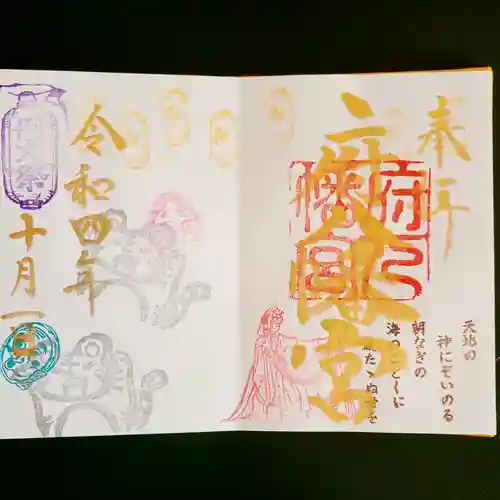 奉拝
府八幡宮
府八幡宮
天地の
神にぞいのる
朝なぎの
海のごとくに
波たゝぬ世を
令和四年
十月一日